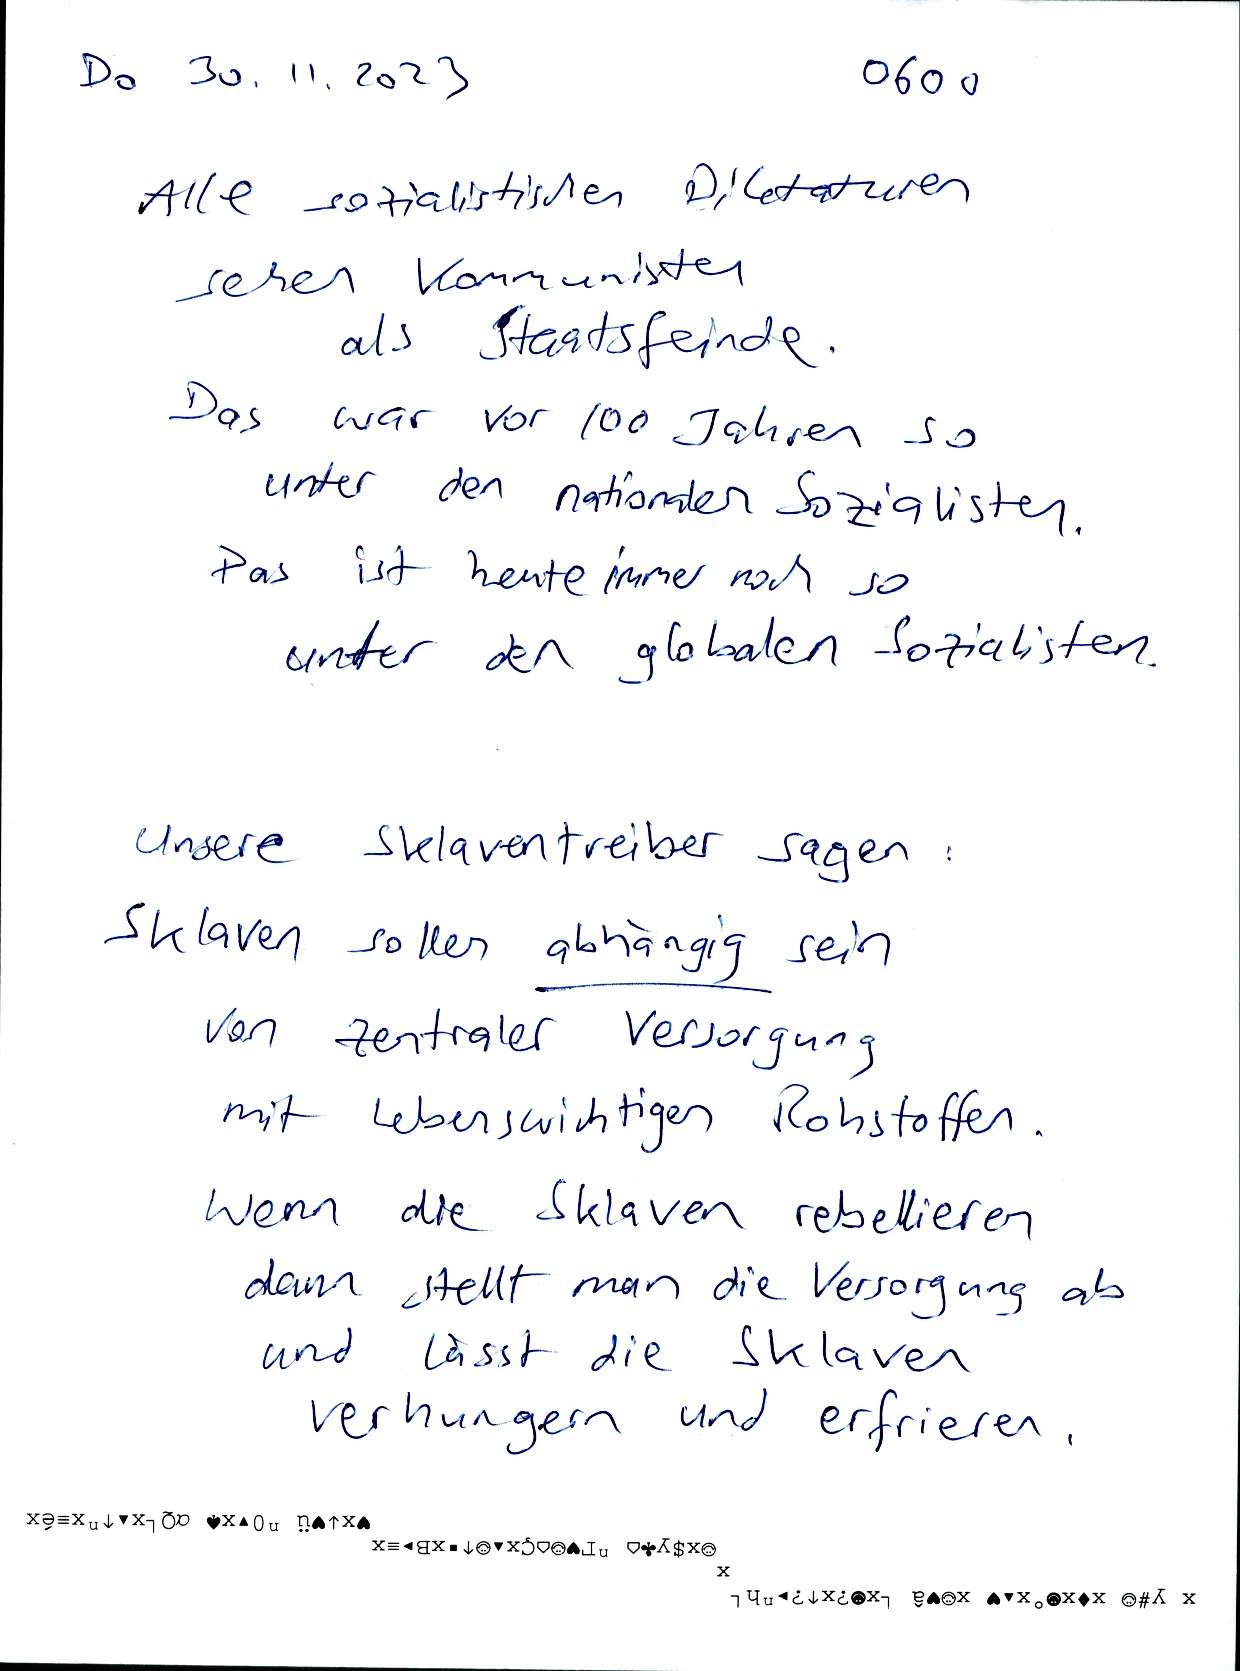 Do 30.11.2023 0600
Alle sozialistischen Diktaturen
sehen Kommunisten
als Staatsfeinde.
Das war vor 100 Jahren so
unter den nationalen Sozialisten.
Das ist heute immer noch so
unter den globalen Sozialisten.
Unsere Sklaventreiber sagen:
Sklaven sollen abhängig sein
von zentraler Versorgung
mit lebenswichtigen Rohstoffen.
Wenn die Sklaven rebellieren
dann stellt man die Versorgung ab
und lässt die Sklaven
verhungern und erfrieren.